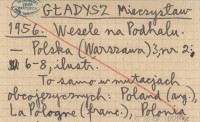 GŁADYSZ Mieczysław
1956. Wesele na Podhalu.
— Polska (Warszawa) 3, nr 2;
6-8, ilustr.
To samo w mutacjach
obcojęzycznych: Poland (ang.),
La Pologne (franc.), Polonia